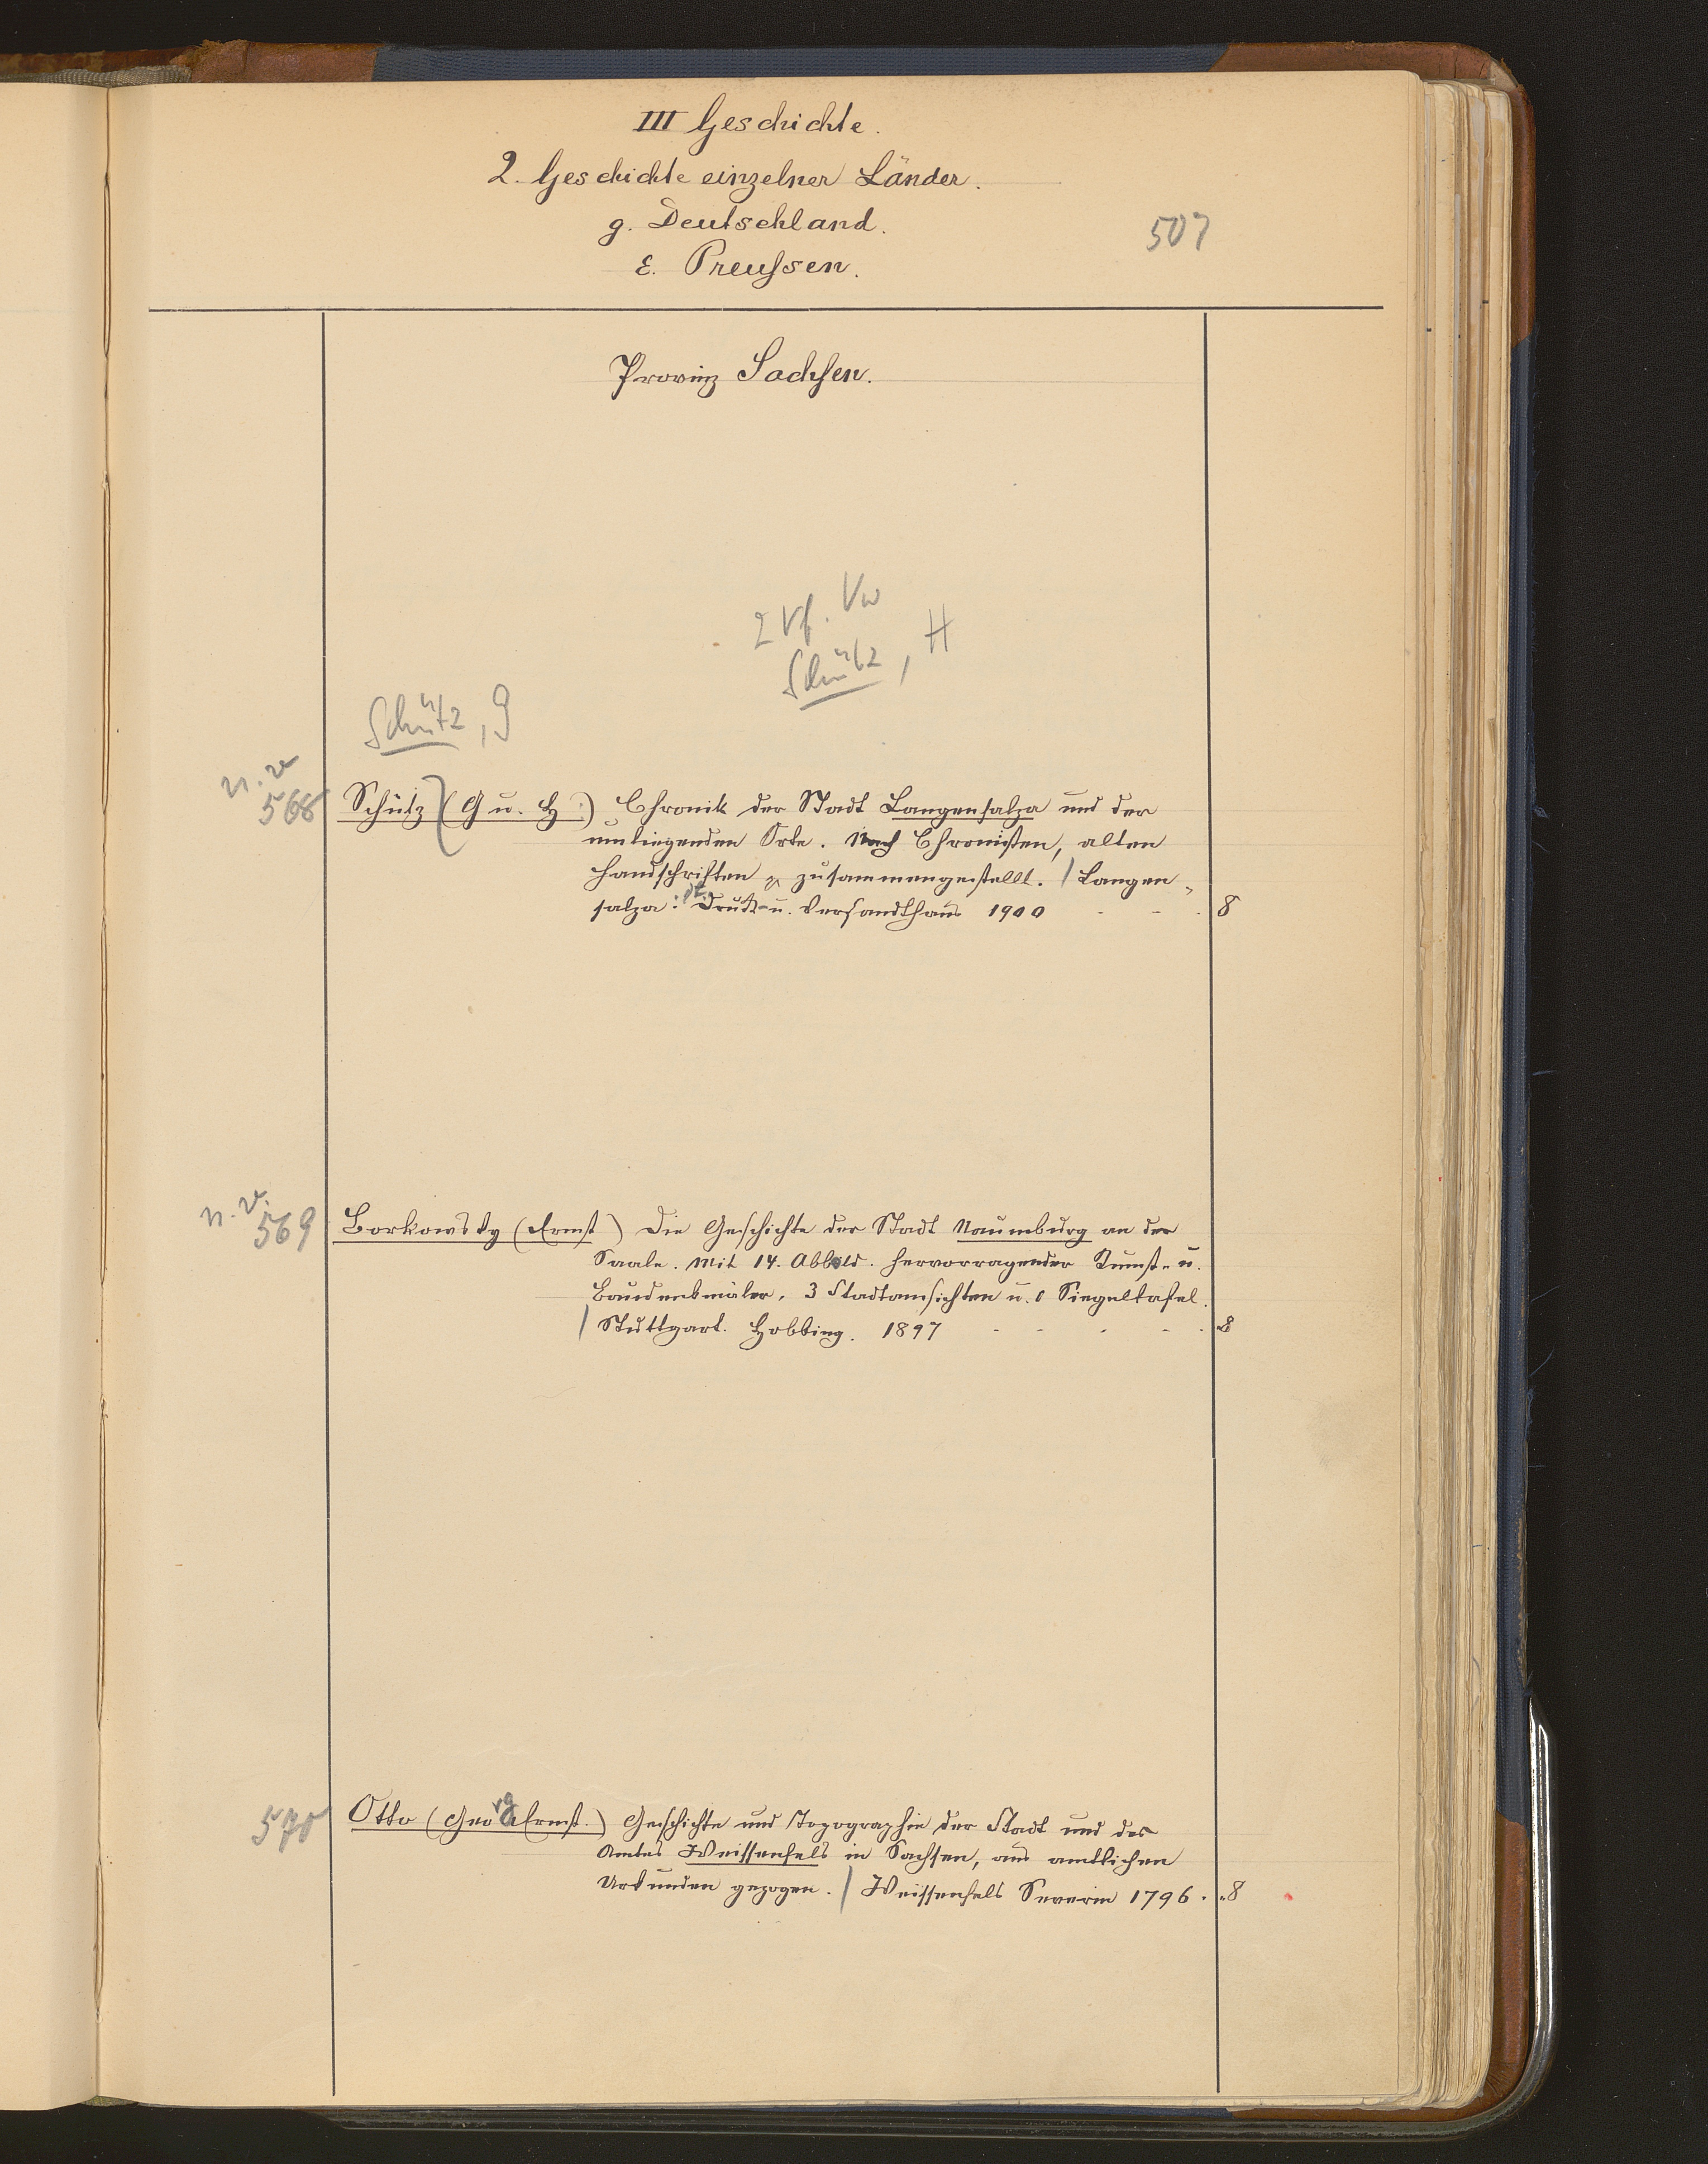 III Geschichte.
2. Geschichte einzelner Länder.
g. Deutschland.
507
ε. Preußen.
Provinz Sachsen.
2 Vf. Vw
Schütz, H
Schütz, G
n. v.
568
Schütz (G u. H.) Chronik der Stadt Langensalza und der
umliegenden Orte. Nach Chronisten, alten
Handschriften zusammengestellt. / Langen-
salza: Druck- u. Versandthaus 1900 - - - 8
n. v.
569
Borkowsky (Ernst) Die Geschichte der Stadt Naumburg an der
Saale. Mit 14. Abbild. hervorragender Kunst- u.
Baudenkmäler, 3 Stadtansichten u. Siegeltafel.
/ Stuttgart. Hobbing. 1897 - - - - - 8
570
Otto (Georg Ernst.) Geschichte und Topographie der Stadt und des
Amtes Weissenfels in Sachsen, aus amtlichen
Urkunden gezogen. / Weissenfels Severin 1796. 8